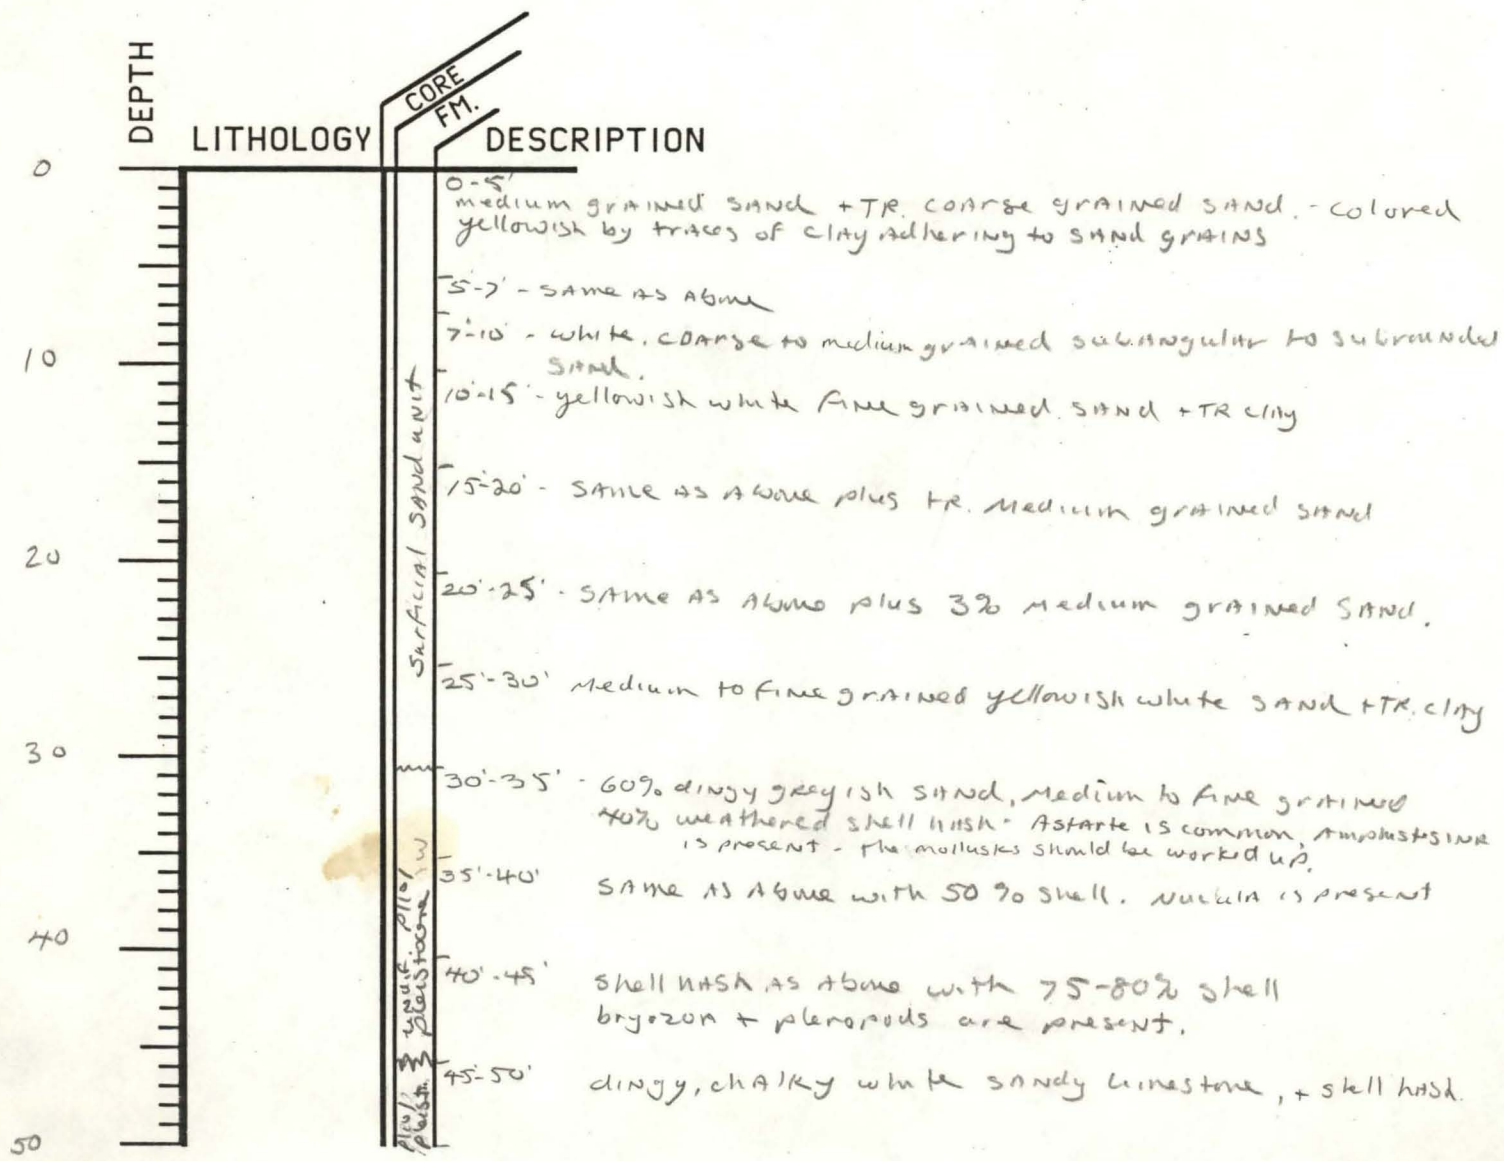 DEPTH
LITHOLOGY
CORE
FM.
DESCRIPTION
0
10
20
30
40
50
Surficial SAND unit
Plio/
Pleistocene
unit
0-5'
medium grained SAND + TR. coarse grained SAND. - colored
yellowish by traces of clay adhering to SAND grains
5'-7' - SAme as Above
7'-10' - white, coarse to medium grained subangular to subrounded
SAND.
10'-15' - yellowish white fine grained SAND + TR clay
15'-20' - SAme as Above plus tr. medium grained SAND
20'-25' - SAme as Above plus 3% medium grained SAND.
25'-30' Medium to fine grained yellowish white SAND + TR. clay
30'-35' - 60% dingy greyish SAND, medium to fine grained
40% weathered shell hash - Astarte is common,
is present - the mollusks should be worked up.
35'-40' SAme as Above with 50% shell. Nucula is present
40'-45' shell hash as Above with 75-80% shell
bryozoa + pteropods are present.
45'-50' dingy, chalky white sandy limestone, + shell hash.